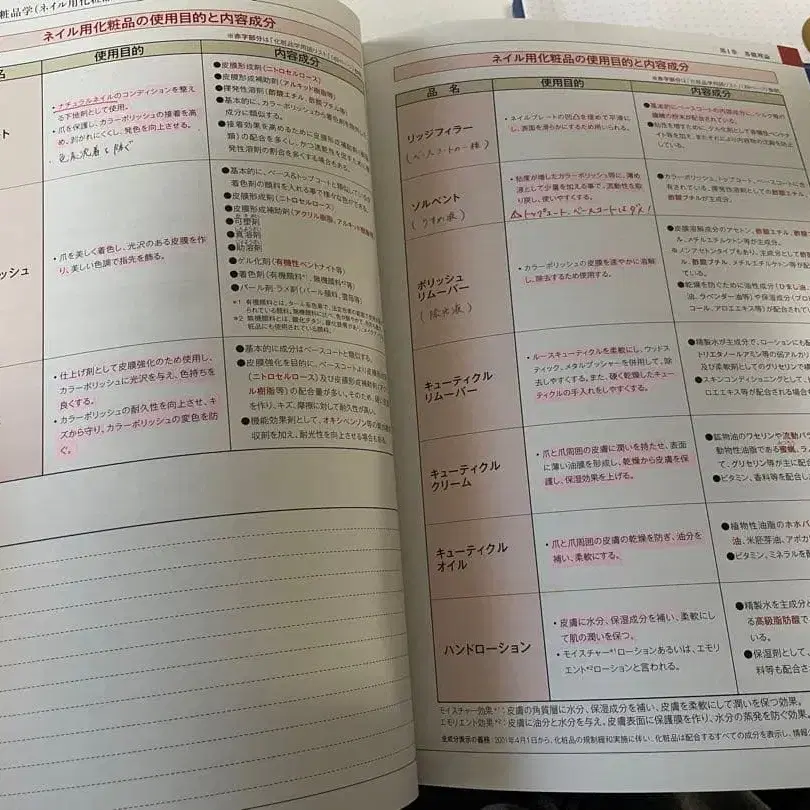 粧品学(ネイル用化粧
ネイル用化粧品の使用目的と内容成分
名
使用目的
内容成分
ト
・ナチュラルネイルのコンディションを整え
る下地剤として使用。
・爪を保護し、カラーポリッシュの接着を高
め、剥がれにくくし、発色を向上させる。
色素沈着を防ぐ
●皮膜形成剤(ニトロセルロース)
●皮膜形成補助剤(アルキッド樹脂等)
●揮発性溶剤(酢酸エチル、酢酸ブチル等)
●基本的に、カラーポリッシュから着色剤を
成分に類似する。
●接着効果を高めるために皮膜形成補助剤(樹脂
類)の配合を多くし、かつ速乾性を
発性溶剤の割合を多くする場合もある。
ッシュ
・爪を美しく着色し、光沢のある皮膜を作
り、美しい色調で指先を飾る。
●基本的に、ベース&トップコートと類似しているが
着色剤の顔料を入れる事で様々な色ができる。
●皮膜形成剤(ニトロセルロース)
●皮膜形成補助剤(アクリル樹脂、アルキッド樹脂
●可塑剤
●真溶剤
●助溶剤
●ゲル化剤(有機性ベントナイト等)
●着色剤(有機顔料*¹、無機顔料*²等)
●パール剤・ラメ剤(パール顔料、雲母等)
・仕上げ剤として皮膜強化のため使用し、
カラーポリッシュに光沢を与え、色持ちを
良くする。
・カラーポリッシュの耐久性を向上させ、キ
ズから守り、カラーポリッシュの変色を防
ぐ。
●基本的に成分はベースコートと類似する。
●皮膜強化を目的に、ベースコートより皮膜形成
(ニトロセルロース)及び皮膜形成補助剤
ル樹脂等)の配合量が多い。そのため、硬い
を作り、キズ、摩擦に対して耐久性が高い。
●機能効果剤として、オキシベンゾン等の紫外
収剤を加え、耐光性を向上させる場合もある。
第1章 基礎理論
ネイル用化粧品の使用目的と内容成分
品 名
使用目的
内容成分
リッジフィラー
(ベースコートの一種)
・ネイルプレートの凹凸を埋めて平滑に
し、表面を滑らかにするため用いられる。
●基本的にベースコートの内容成分に、シルク等の
繊維の粉末が配合されている。
ソルベント
(うすめ液)
・粘度が増したカラーポリッシュ等に、薄め
液として少量を加える事で、流動性を取
り戻し、使いやすくする。
△トップコート、ベースコートはダメ!
●カラーポリッシュ、トップコート、ベースコートにも
有されている、揮発性溶剤としての酢酸エチル、
酸ブチルが主成分。
ポリッシュ
リムーバー
(除光液)
・カラーポリッシュの皮膜を速やかに溶解
し、除去するため使用する。
●皮膜溶解成分のアセトン、酢酸エチル、酢酸
ル、メチルエチルケトン等が主成分。
●ノンアセトンタイプもあり、主成分として酢酸
ル、酢酸ブチル、メチルエチルケトン等が
ている。
●乾燥を防ぐために油性成分(ひまし油、
油、ラベンダー油等)や保湿成分(プロ
コール、アロエエキス等)が配合されてい
キューティクル
リムーバー
・ルースキューティクルを柔軟にし、ウッドス
ティック、メタルプッシャーを併用して、除
去しやすくする。また、硬く乾燥したキュー
ティクルの手入れをしやすくする。
●精製水が主成分で、ローションにも配
トリエタノールアミン等の弱アルカリ
及び柔軟剤としてのグリセリンで構
●スキンコンディショニングとして、
ロエエキス等が配合される場合
キューティクル
クリーム
・爪と爪周囲の皮膚に潤いを持たせ、表面
に薄い油膜を形成し、乾燥から皮膚を保
護し、保湿効果を上げる。
●鉱物油のワセリンや流動パ
動物性油脂である蜜蝋、ラ
て、グリセリン等が主に配合
●ビタミン、香料等を配合し
キューティクル
オイル
・爪と爪周囲の皮膚の乾燥を防ぎ、油分を
補い、柔軟にする。
●植物性油脂のホホバ
油、米胚芽油、アボカ
●ビタミン、ミネラルを
ハンドローション
・皮膚に水分、保湿成分を補い、柔軟にし
て肌の潤いを保つ。
・モイスチャー*¹ローションあるいは、エモリ
エント*²ローションと言われる。
●精製水を主成分と
る高級脂肪酸で
いる。
●保湿剤として、
料等も配合され
モイスチャー効果*¹:皮膚の角質層に水分、保湿成分を補い、皮膚を柔軟にして潤いを保つ効果。
エモリエント効果*²:皮膚に油分と水分を与え、皮膚表面に保護膜を作り、水分の蒸発を防ぐ効果。
全成分表示の義務:2001年4月1日から、化粧品の規制緩和実施に伴い、化粧品は配合するすべての成分を表示し、情報